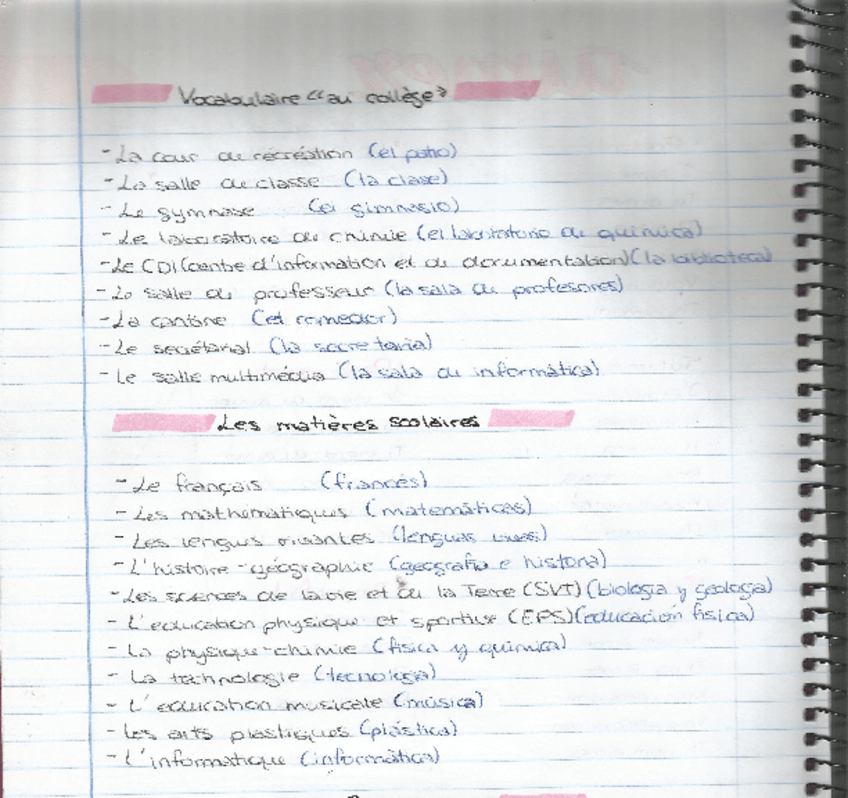 Vocabulaire "au collège"
- La cour de récréation (el patio)
- La salle de classe (la clase)
- Le gymnase (el gimnasio)
- Le laboratoire de chimie (el laboratorio de química)
- Le CDI (centre d'information et de documentation) (la biblioteca)
- La salle de professeur (la sala de profesores)
- La cantine (el comedor)
- Le secrétariat (la secretaria)
- Le salle multimédia (la sala de informática)
Les matières scolaires
- Le français (francés)
- Les mathématiques (matemáticas)
- Les lengus vivantes (lenguas vivas)
- L'histoire-géographie (geografía e historia)
- Les sciences de la vie et de la Terre (SVT) (biología y geología)
- L'education physique et sportive (EPS) (educación física)
- La physique-chimie (física y química)
- La technologie (tecnología)
- L'education musicale (música)
- Les arts plastiques (plástica)
- L'informatique (informática)